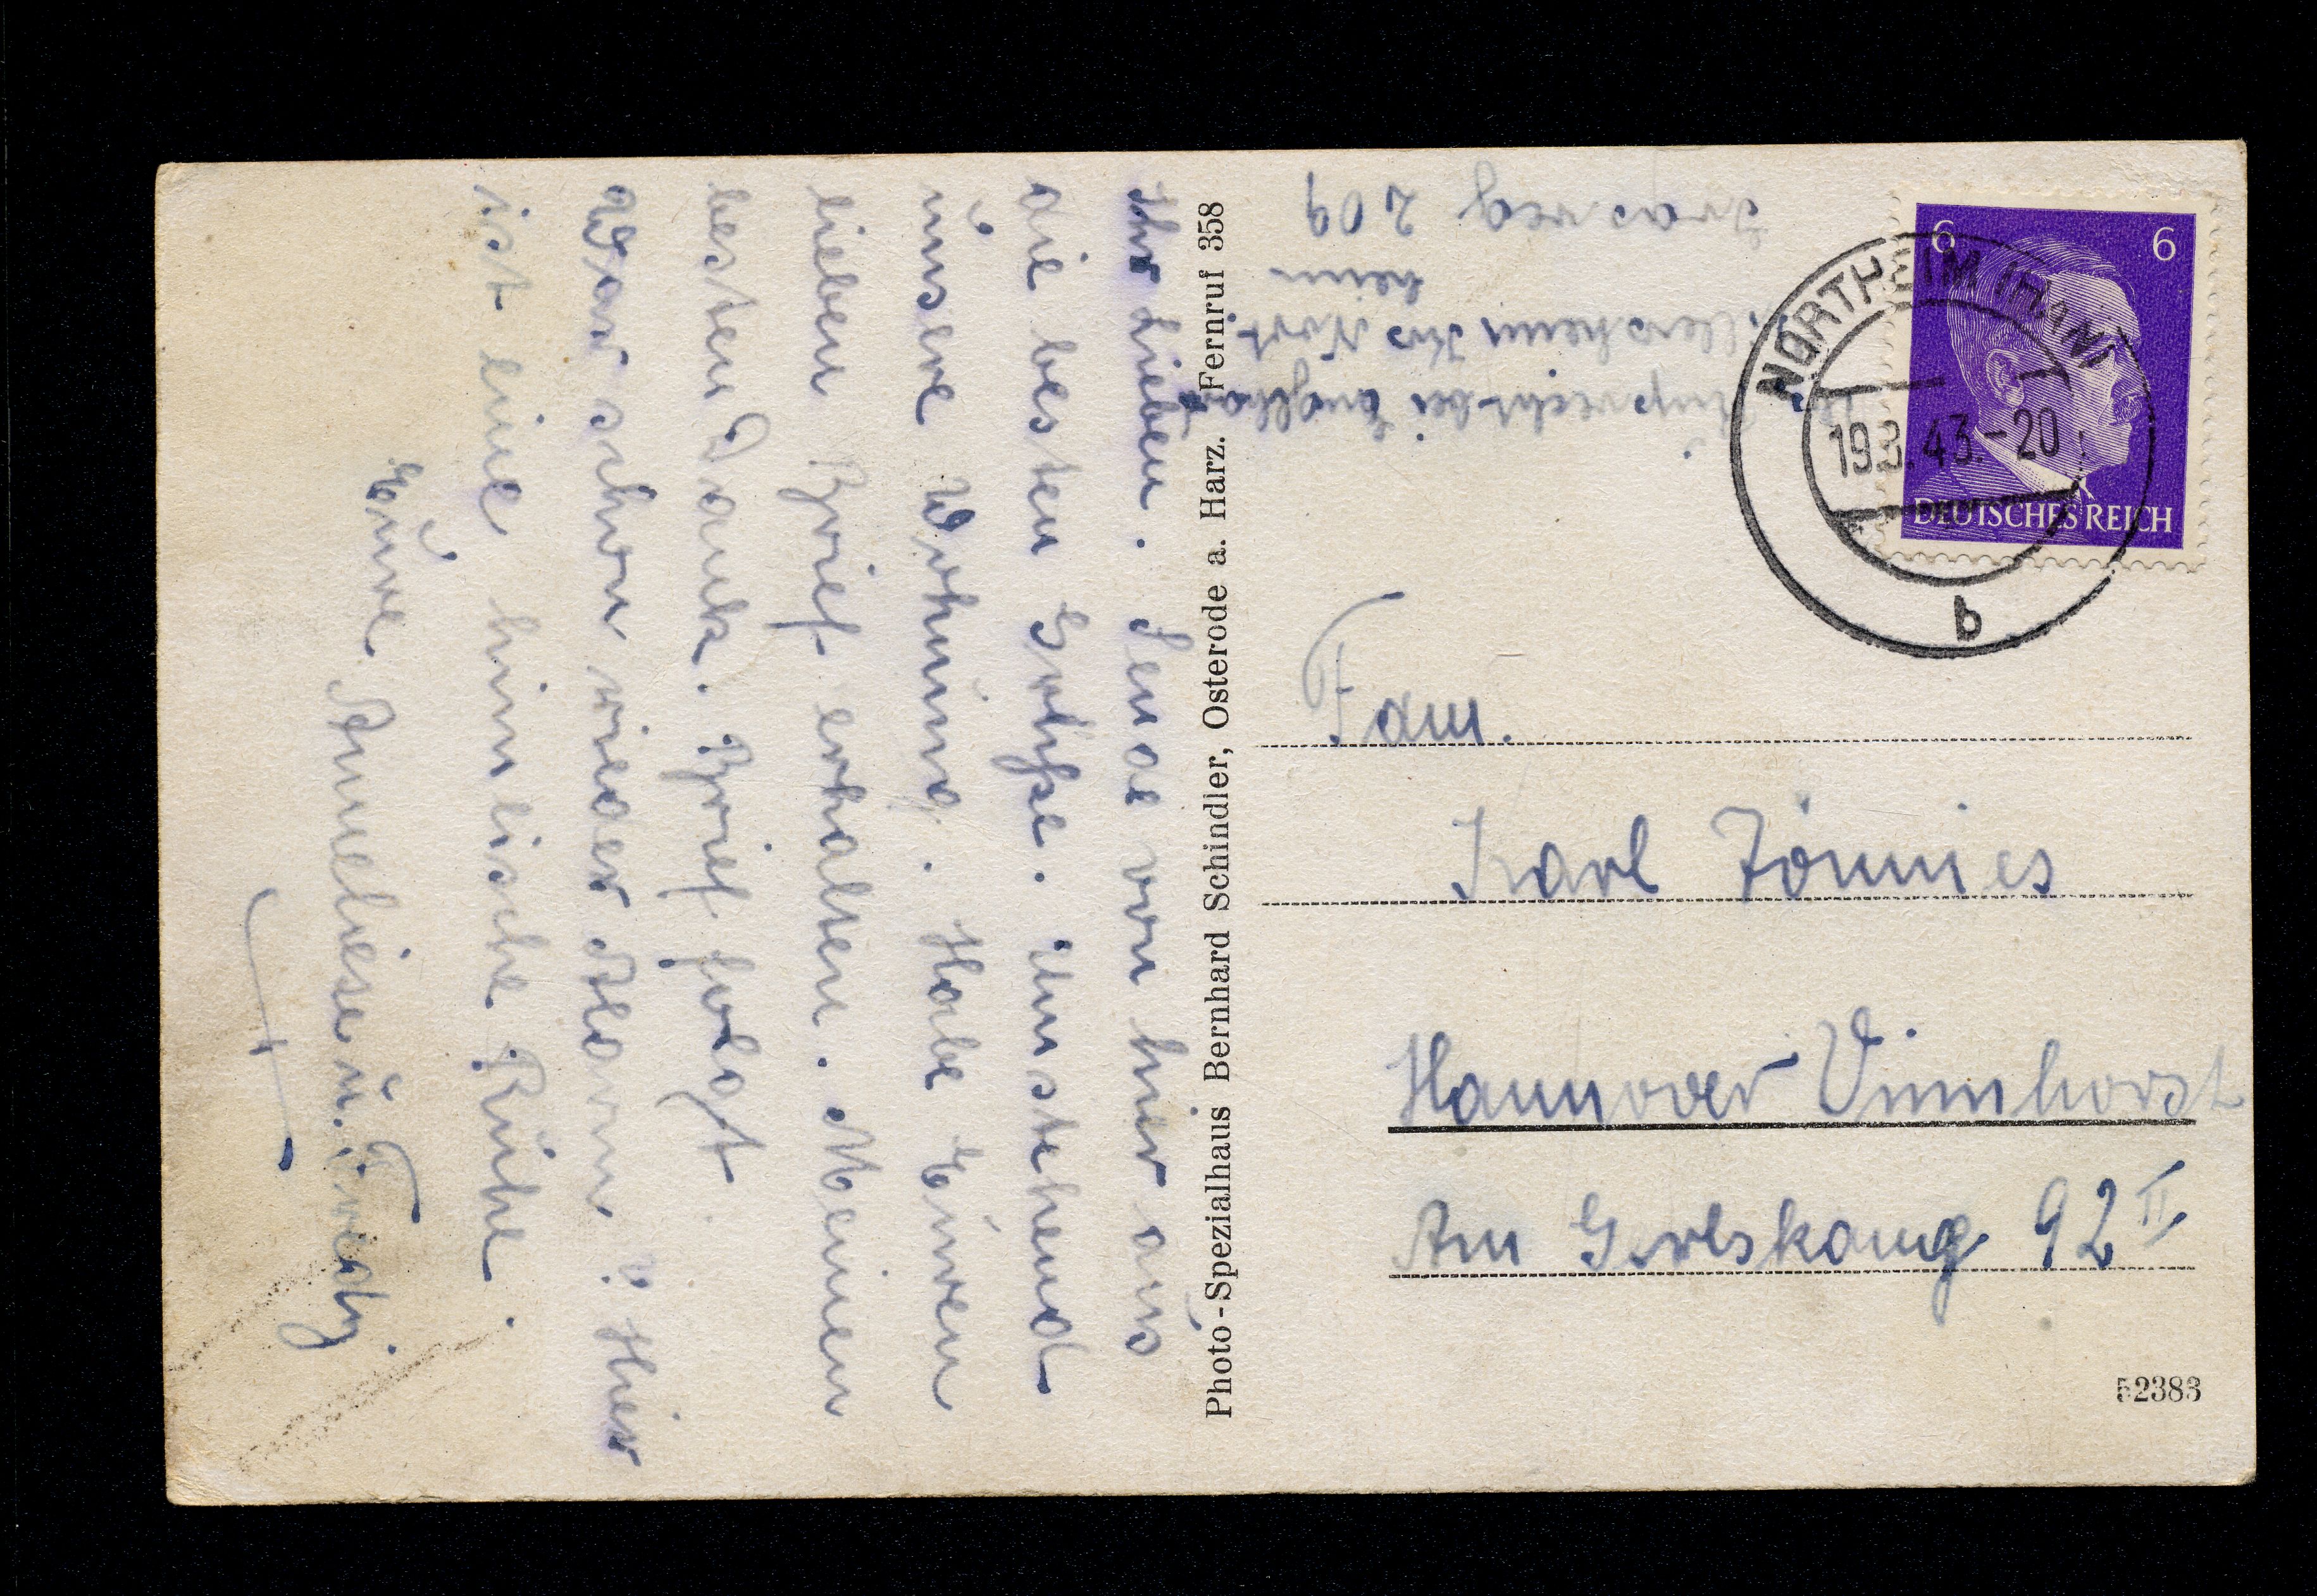 Ihr Lieben. Sende von hier aus
die besten Grüsse. Umstehend
unsere Wohnung. Habe Euren
lieben Brief erhalten. Meinen
besten Dank. Brief folgt
War schon wieder Alarm? Hier
ist eine himlische Ruhe.
Eure Anneliese u.
Photo-Spezialhaus Bernhard Schindler, Osterode a. Harz. Fernruf 358
bei
heim
209
6 6
DEUTSCHES REICH
NORTHEIM (HAN)
19.8.43.-20
b
Fam.
Karl Tönnies
Hannover Vinnhorst
Am 92 II
52383